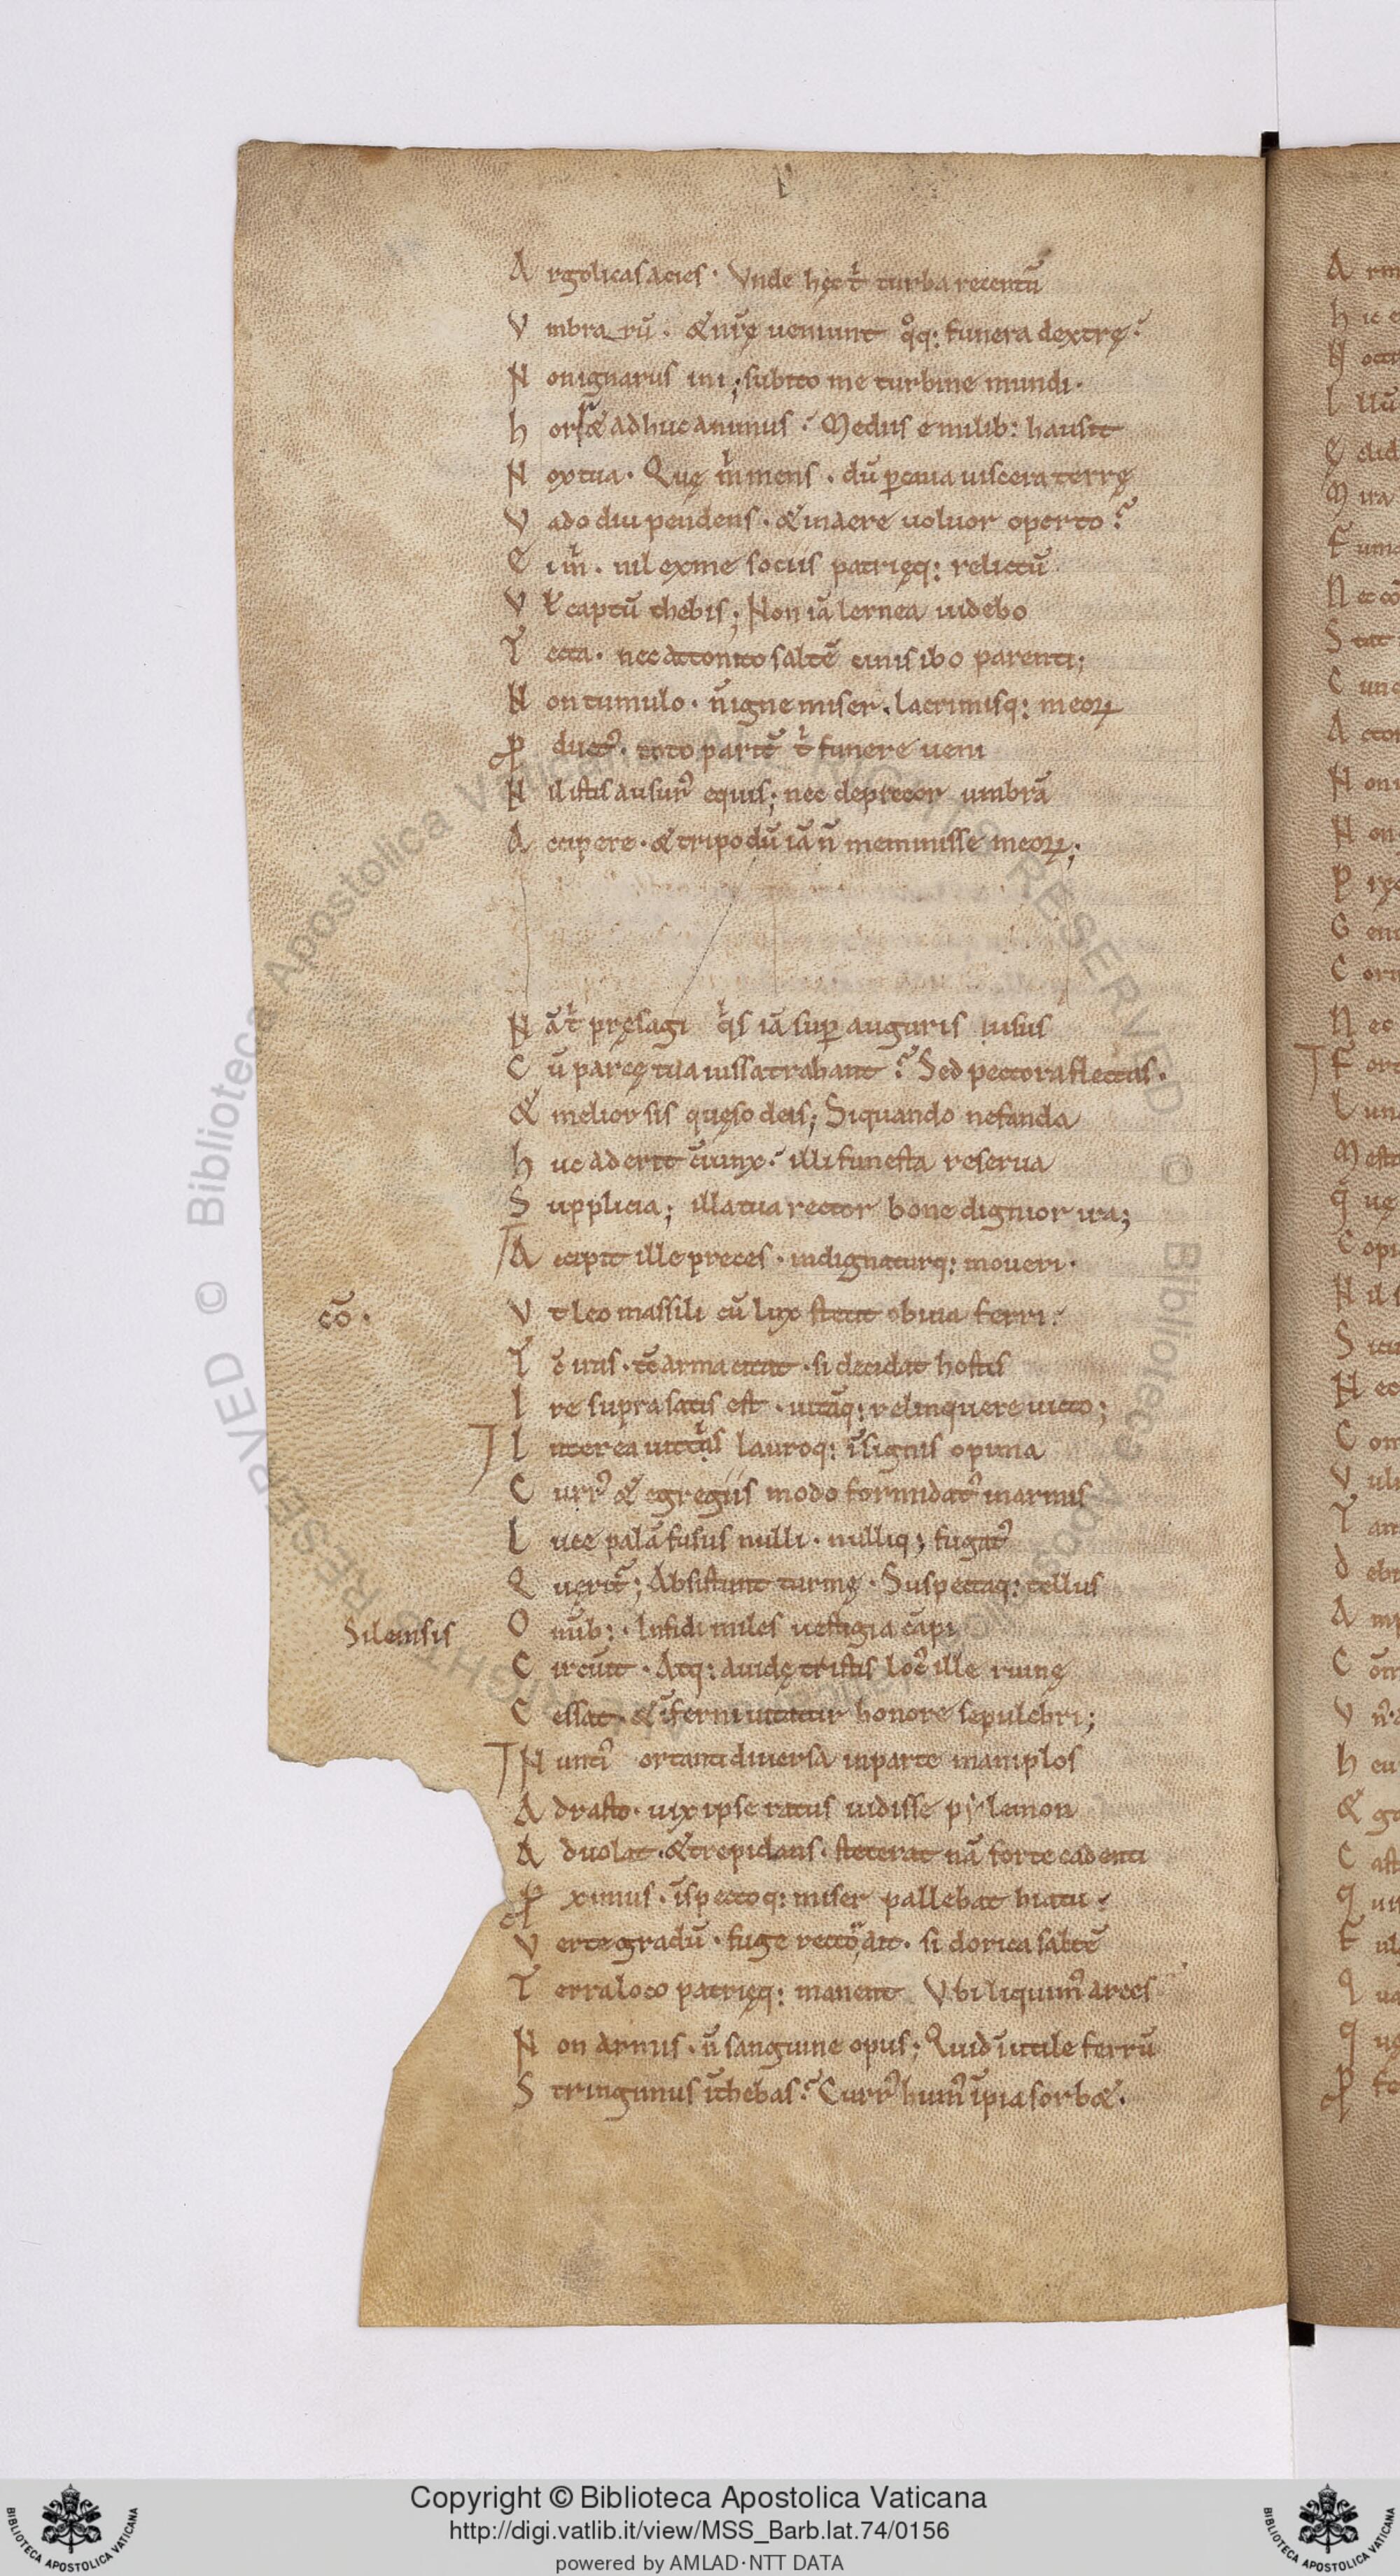 A rgolicas acies · Vnde hęc t̄ turba recentū
V mbrarū · & nr̄ę ueniunt q°q: funera dextrę ·
N on ignarus ini; subito me turbine mundi ·
h orr& adhuc animus · Medius e milib: hausit
N ox tua · Quę m̄ mens · dū p caua uiscera terrę
V ado diu pendens · & in aere uoluor operto ?
E i m̄ · nil ex me sociis patrięq: relictū
V ł captū thebis; Non iā lernea uidebo
T ecta · nec attonito saltē cinis ibo parenti;
N on tumulo · n̄ igne miser · lacrimisq: meoꝝ
ꝓ duct᾿ · toto paritē t̄ funere ueni
N il istis ausur᾿ equis; nec deprecor umbrā
A ccipere · & tripodū iā n̄ meminisse meoꝝ;
N ā t̄ pręsagi q's iā sup auguris usus
C ū parcę tua iussa trahant ? Sed pectora flectas ·
& melior sis quęso deis; Si quando nefanda
h uc aderit c̄iunx · illi funesta reserua
S upplicia; illa tua rector bone dignior ira;
A ccipit ille preces · indignaturq: moueri ·
cō ·
V t leo massili cū lux stetit obuia ferri ·
T c̄ iras · tc̄ arma citat · si decidat hostis
I re supra satis est · uitāq: relinquere uicto;
I nterea uittis lauroq: īsignis opima
C urr᾿ & egregiis modo formidat᾿ in armis
L uce palā fusus nulli · nulliq; fugat᾿
Q uęrit᾿; Absistunt turmę · Suspectaq: tellus
Silemsis
O mīb: · Infidi miles uestigia cāpi
C ircuit · Atq: auidę tristis loc᾿ ille ruinę
C essat · & īferni uitatur honore sepulchri;
N unti᾿ ortanti diuersa in parte maniplos
A drasto · uix ipse ratus uidisse pylemon
A duolat · & trepidans · steterat nā forte cadenti
ꝓ ximus · īspectoq: miser pallebat hiatu ·
V erte gradū · fuge rector ait · si dorica saltē
T erra loco patrięq: manent Vbi liquim᾿ arces
N on armis · n̄ sanguine opus; Quid īutile ferrū
S tringimus ī thebas ? Curr᾿ hum᾿ īpia sorb& ·
Copyright © Biblioteca Apostolica Vaticana
http://digi.vatlib.it/view/MSS_Barb.lat.74/0156
powered by AMLAD·NTT DATA